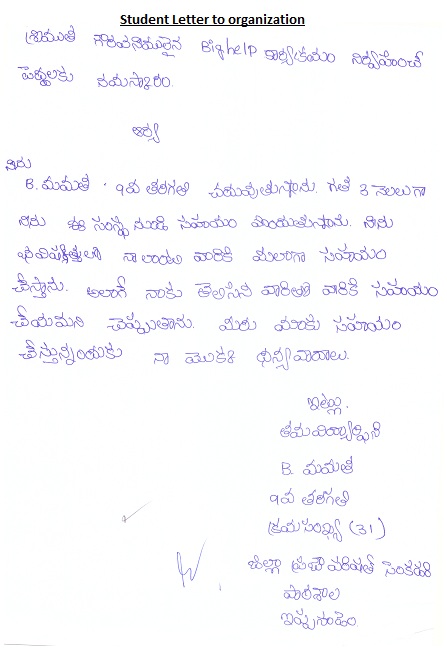 Student Letter to organization
శ్రీమతి గౌరవనీయులైన Big help కార్యక్రమం నిర్వహించే
పెద్దలకు నమస్కారం.
ఆర్య
నేను
B. మమత 9వ తరగతి చదువుతున్నాను. గత 3 నెలలుగా
నేను ఈ సంస్థ నుండి సహాయం పొందుతున్నాను. నేను
భవిష్యత్తులో నాలాంటి వారికి మలాగా సహాయం
చేస్తాను. అలాగే నాకు తెలిసిన వారితో వారికి సహాయం
చేయమని చెప్పుతాను. మీరు మాకు సహాయం
చేస్తున్నందుకు నా మొకటి ధన్యవాదాలు.
ఇట్లు.
తమ విద్యార్థిని
B. మమత
9వ తరగతి
క్రమసంఖ్య (31)
జిల్లా ప్రజా పరిషత్ సెంకడరి
పాఠశాల
ఇప్పగూడెం.